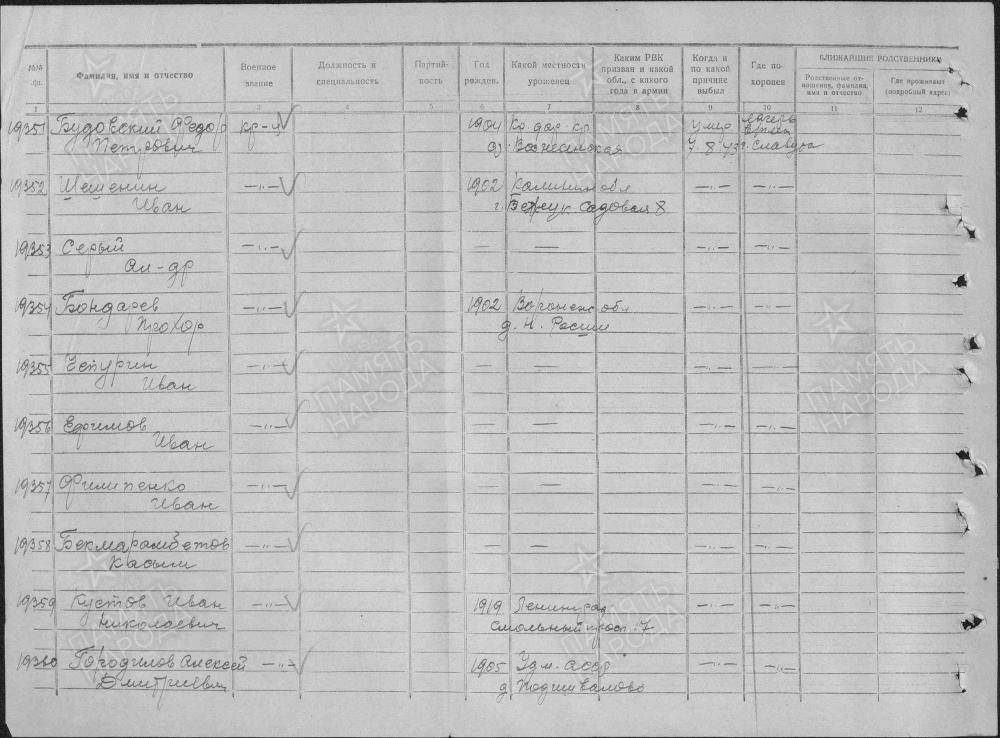 №№ п/п. Фамилия, имя и отчество Военное звание Должность и специальность Партийность Год рожден. Какой местности уроженец Каким РВК призван и какой обл., с какого года в армии Когда и по какой причине выбыл Где похоронен БЛИЖАЙШИЕ РОДСТВЕННИКИ
Родственные отношения, фамилия, имя и отчество Где проживают (подробный адрес)
1 3 4 5 6 7 8 9 10 11 12
19351 Будовский Федор кр-ц 1904 Кр. дар. кр. умер лагерь
Петрович Вознесенская 7.8.43 г. Славута
19352 Шешенин —〃— 1902 Калинин обл —〃— —〃—
Иван г. Садовая 8
19353 Серый —〃— — — —〃— —〃—
Ал-др
19354 Бондарев —〃— 1902 Воронеж обл —〃— —〃—
Прохор д. Н.
19355 Чепургин —〃— — — —〃— —〃—
Иван
19356 Ефимов —〃— —〃— —〃—
Иван
19357 Филипенко —〃— — — —〃— —〃—
Иван
19358 Бекмарамбетов —〃— — — —〃— —〃—
Касым
19359 Кустов Иван —〃— 1919 Ленинград —〃— —〃—
Николаевич Смольный просп. 7
19360 Городилов Алексей —〃— 1905 Удм. АССР —〃— —〃—
Дмитриевич д Подшивалово
ПАМЯТЬ НАРОДА